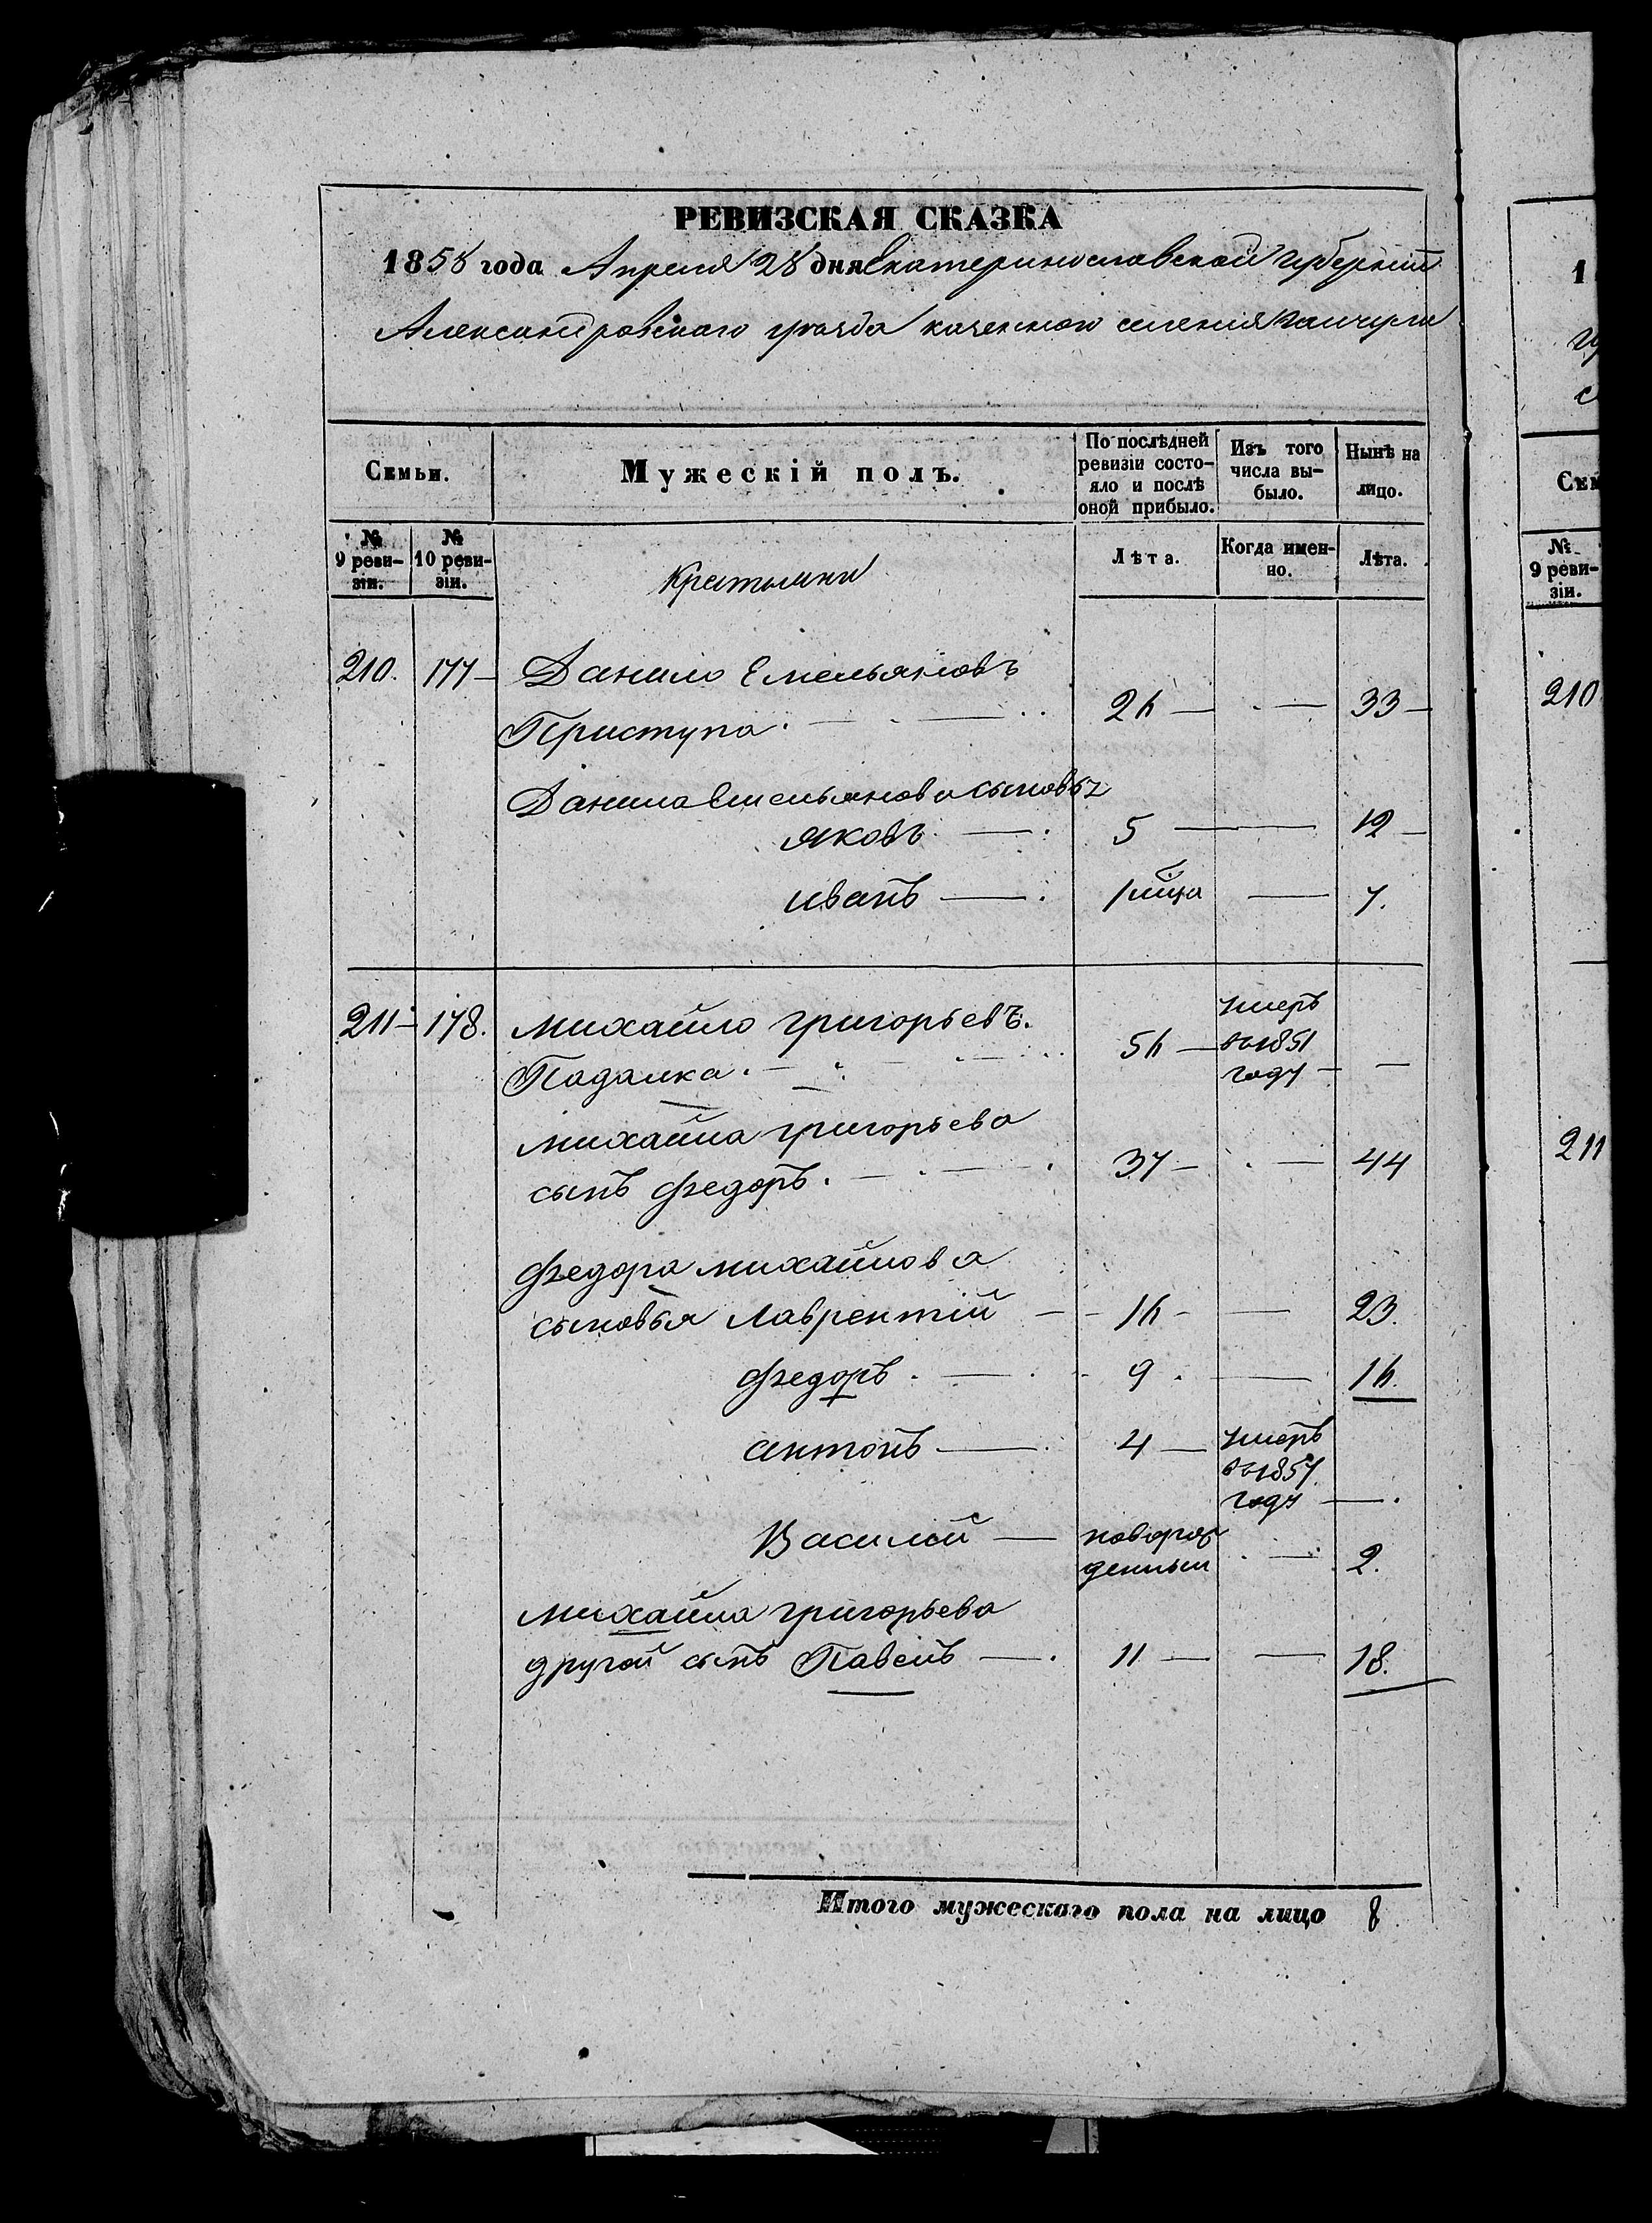 РЕВИЗСКАЯ СКАЗКА
1858 года Апреля 28 дня Екатеринославской Губернии
Александровскаго уезда казенного селения Камчула
Семьи.
Мужескій полъ.
По послѣдней ревизіи состо-яло и послѣ оной прибыло.
Изъ того числа вы-было.
Нынѣ на лицо.
№ 9 реви-зіи.
№ 10 реви-зіи.
Крестьяни
Лѣта.
Когда имен-но.
Лѣта.
210. 177 Данило Емельяновъ
Приступа. 26 — — 33
Данила Емельянова сыновья
яковъ 5 — 12
иванъ 1 мца — 7.
211 178. михайло григорьевъ.
Падалка. 56 умеръ въ 1851 году —
михайла григорьева
сынъ федоръ. 37 — 44
федора михайлова
сыновья Лаврентій 16 — 23.
федоръ. 9 — 16.
антонъ 4 умеръ въ 1857 году —
Василій новорож денныи — 2.
михайла григорьева
другой сынъ Павелъ 11 — 18.
Итого мужескаго пола на лицо 8
1
Сем
№ 9 реви-зіи.
210
211